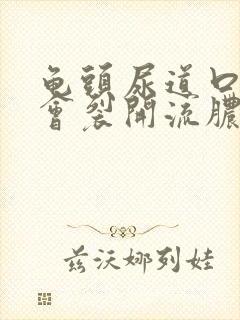 龟頭尿道口
會裂開流膿
兹沃娜列娃